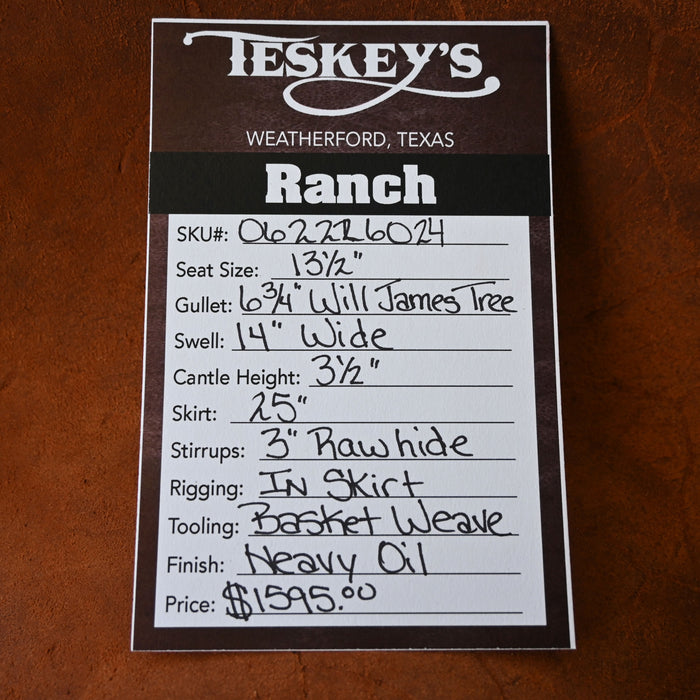 TESKEY'S
WEATHERFORD, TEXAS
Ranch
SKU#:
Seat Size: 13½"
Gullet: 6¾" Will James Tree
Swell: 14" Wide
Cantle Height: 3½"
Skirt: 25"
Stirrups: 3" Rawhide
Rigging: In Skirt
Tooling: Basket Weave
Finish: Heavy Oil
Price: $1595.00